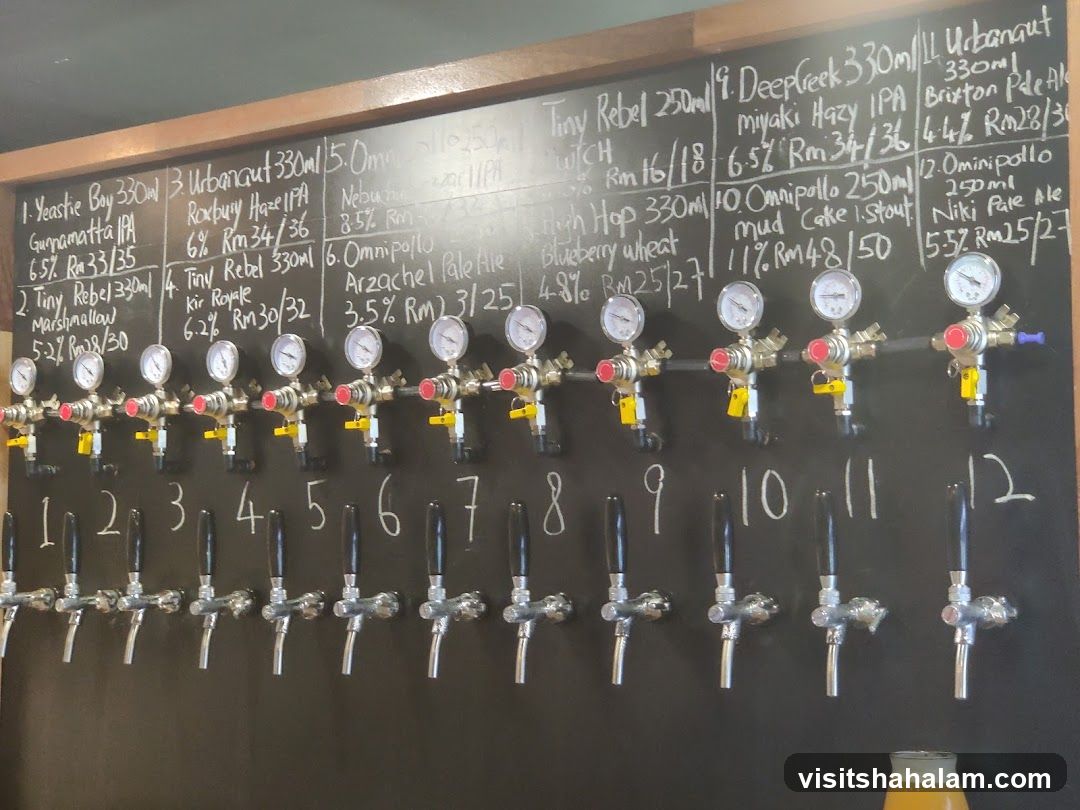 1. Yeastie Boy 330ml
Gunnamatta IPA
6.5% Rm 33/35
2. Tiny Rebel 330ml
Marshmallow
5.2% Rm28/30
3. Urbanaut 330ml
Roxbury Haze IPA
6% Rm 34/36
4. Tiny Rebel 330ml
Kir Royale
6.2% Rm 30/32
5. 250ml
IPA
8.5% Rm
6. Omnipollo
Arzachel Pale Ale
3.5% Rm23/25
Tiny Rebel 250ml
Rm 16/18
High Hop 330ml
Blueberry wheat
4.8% Rm25/27
9. DeepCreek 330ml
miyaki Hazy IPA
6.5% Rm 34/36
10. Omnipollo 250ml
mud Cake I.Stout
11% Rm48/50
11. Urbanaut
330ml
Brixton Pale Ale
4.4% Rm28/30
12. Ominipollo
250ml
Niki Pale Ale
5.5% Rm25/27
1 2 3 4 5 6 7 8 9 10 11 12
visitshahalam.com